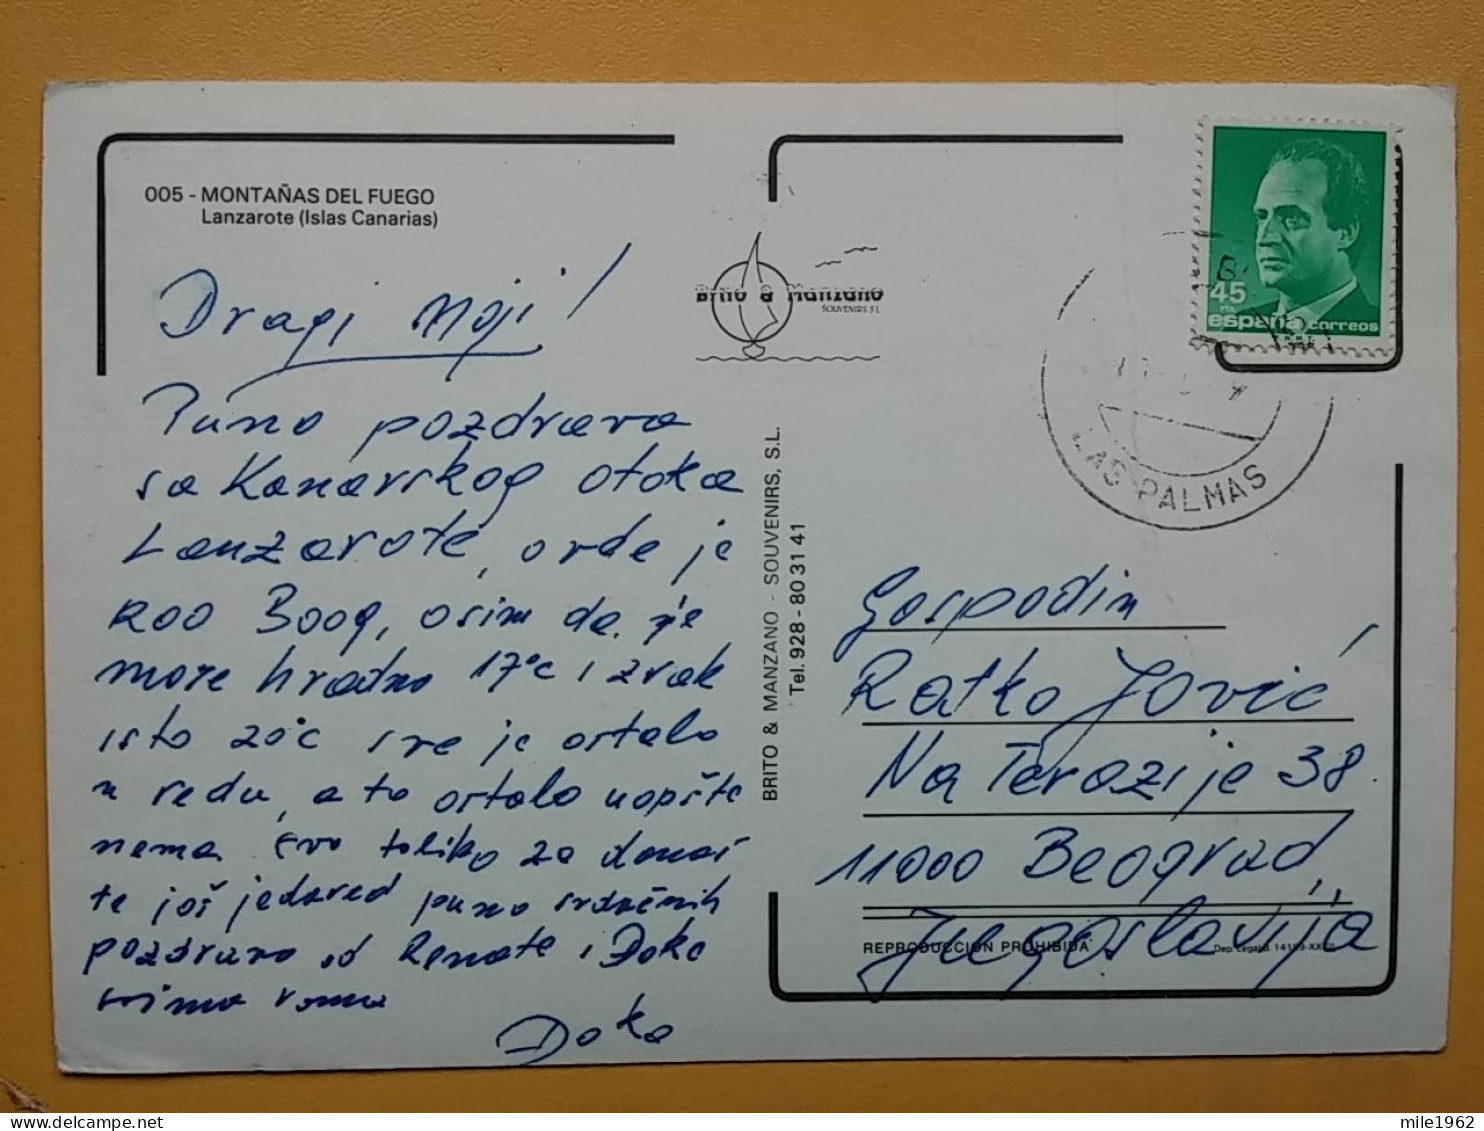 005 - MONTAÑAS DEL FUEGO
Lanzarote (Islas Canarias)
Dragi Moji!
Puno pozdrava
sa Kanarskog otoka
Lanzarote, ovde je
kao Boog, osim da je
more hladno 17°C i zrak
isto 20°C sve je ostalo
u redu, a to ostalo uopšte
nema. Evo toliko za danas
te još jedared puno srdačnih
pozdrava od Renate i Đoke
svima vama
Đoka
Brito & Manzano
SOUVENIRS S L
BRITO & MANZANO - SOUVENIRS, S.L.
Tel. 928 - 80 31 41
45
PTA
españa correos
LAS PALMAS
Gospodin
Ratko Jović
Na Terazije 38
11000 Beograd,
Jugoslavija
REPRODUCCION PROHIBIDA
Dep. Legal
mile1962